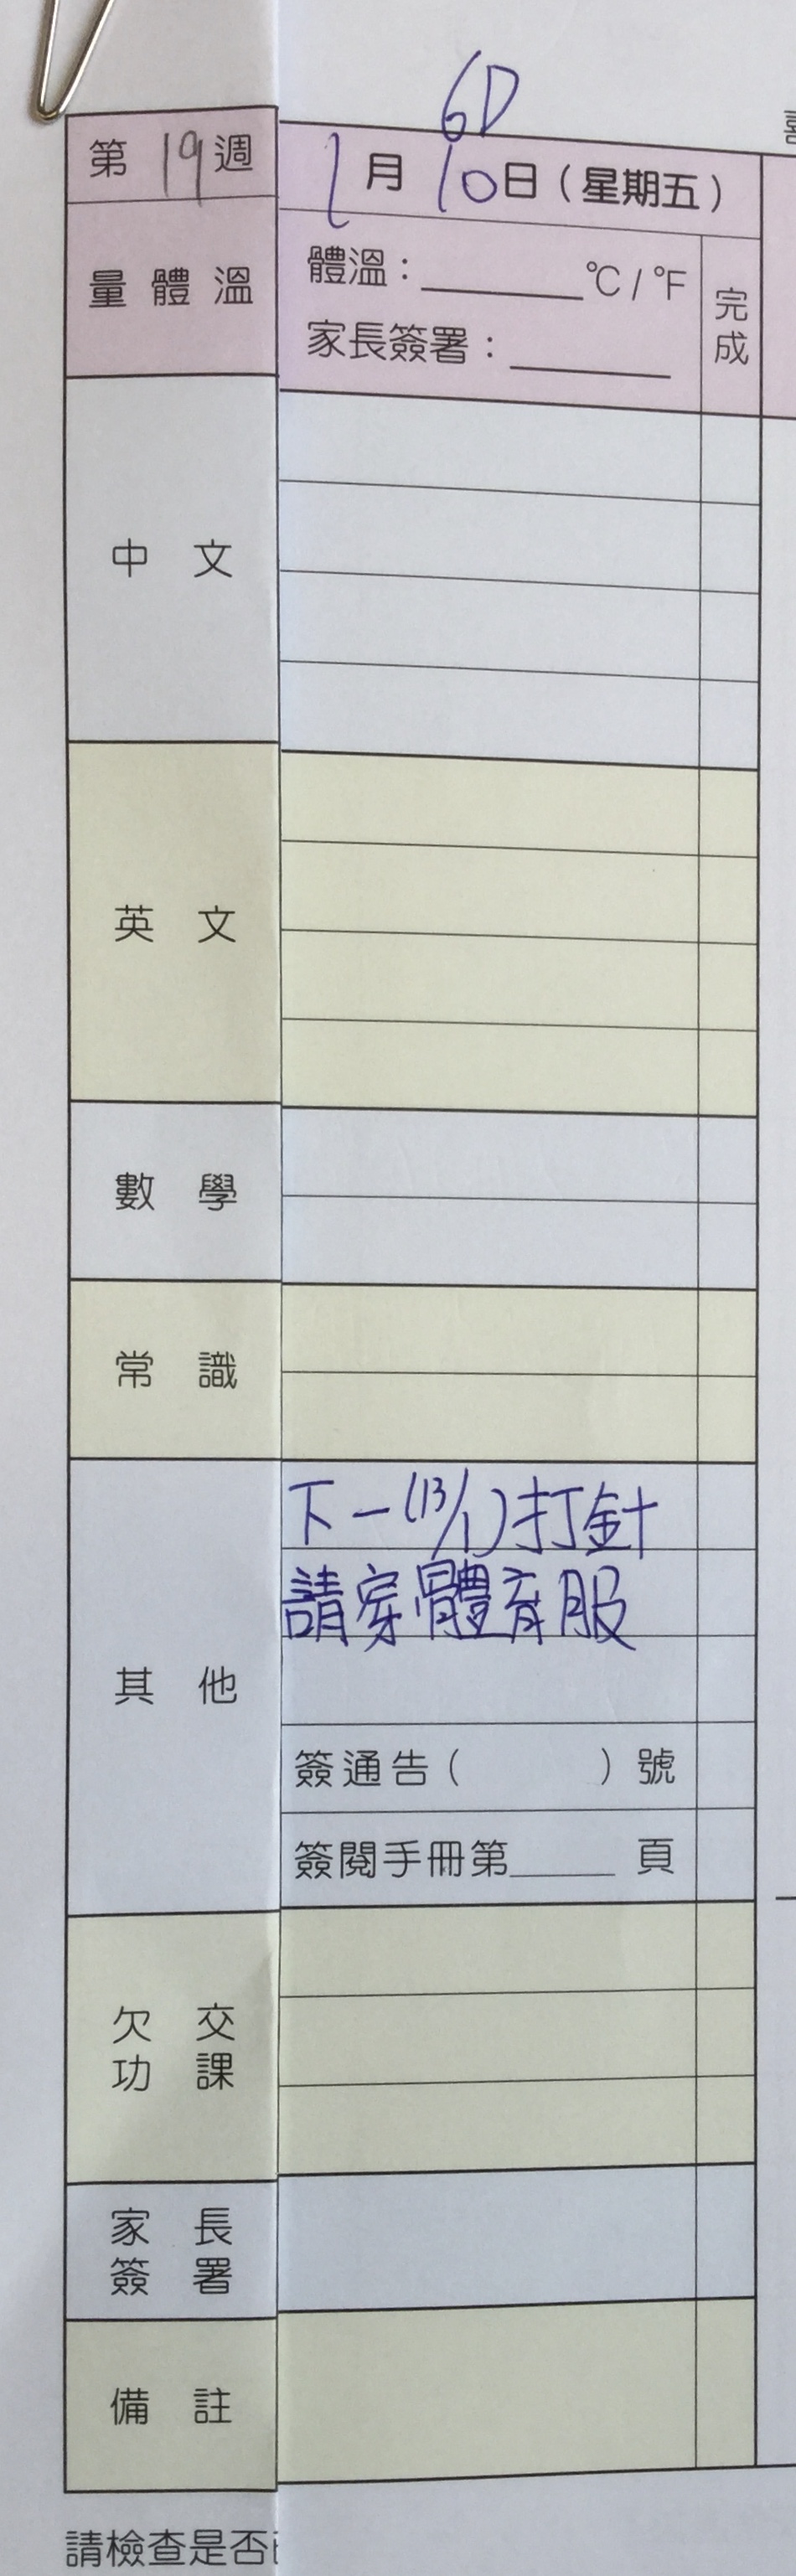 6D
第 19 週
1 月 10 日（星期五）
量體溫
體溫：______℃/℉
家長簽署：______
完成
中文
英文
數學
常識
其他
下一(13/1)打針
請穿體育服
簽通告（　　　）號
簽閱手冊第_____頁
欠交
功課
家長
簽署
備註
請檢查是否